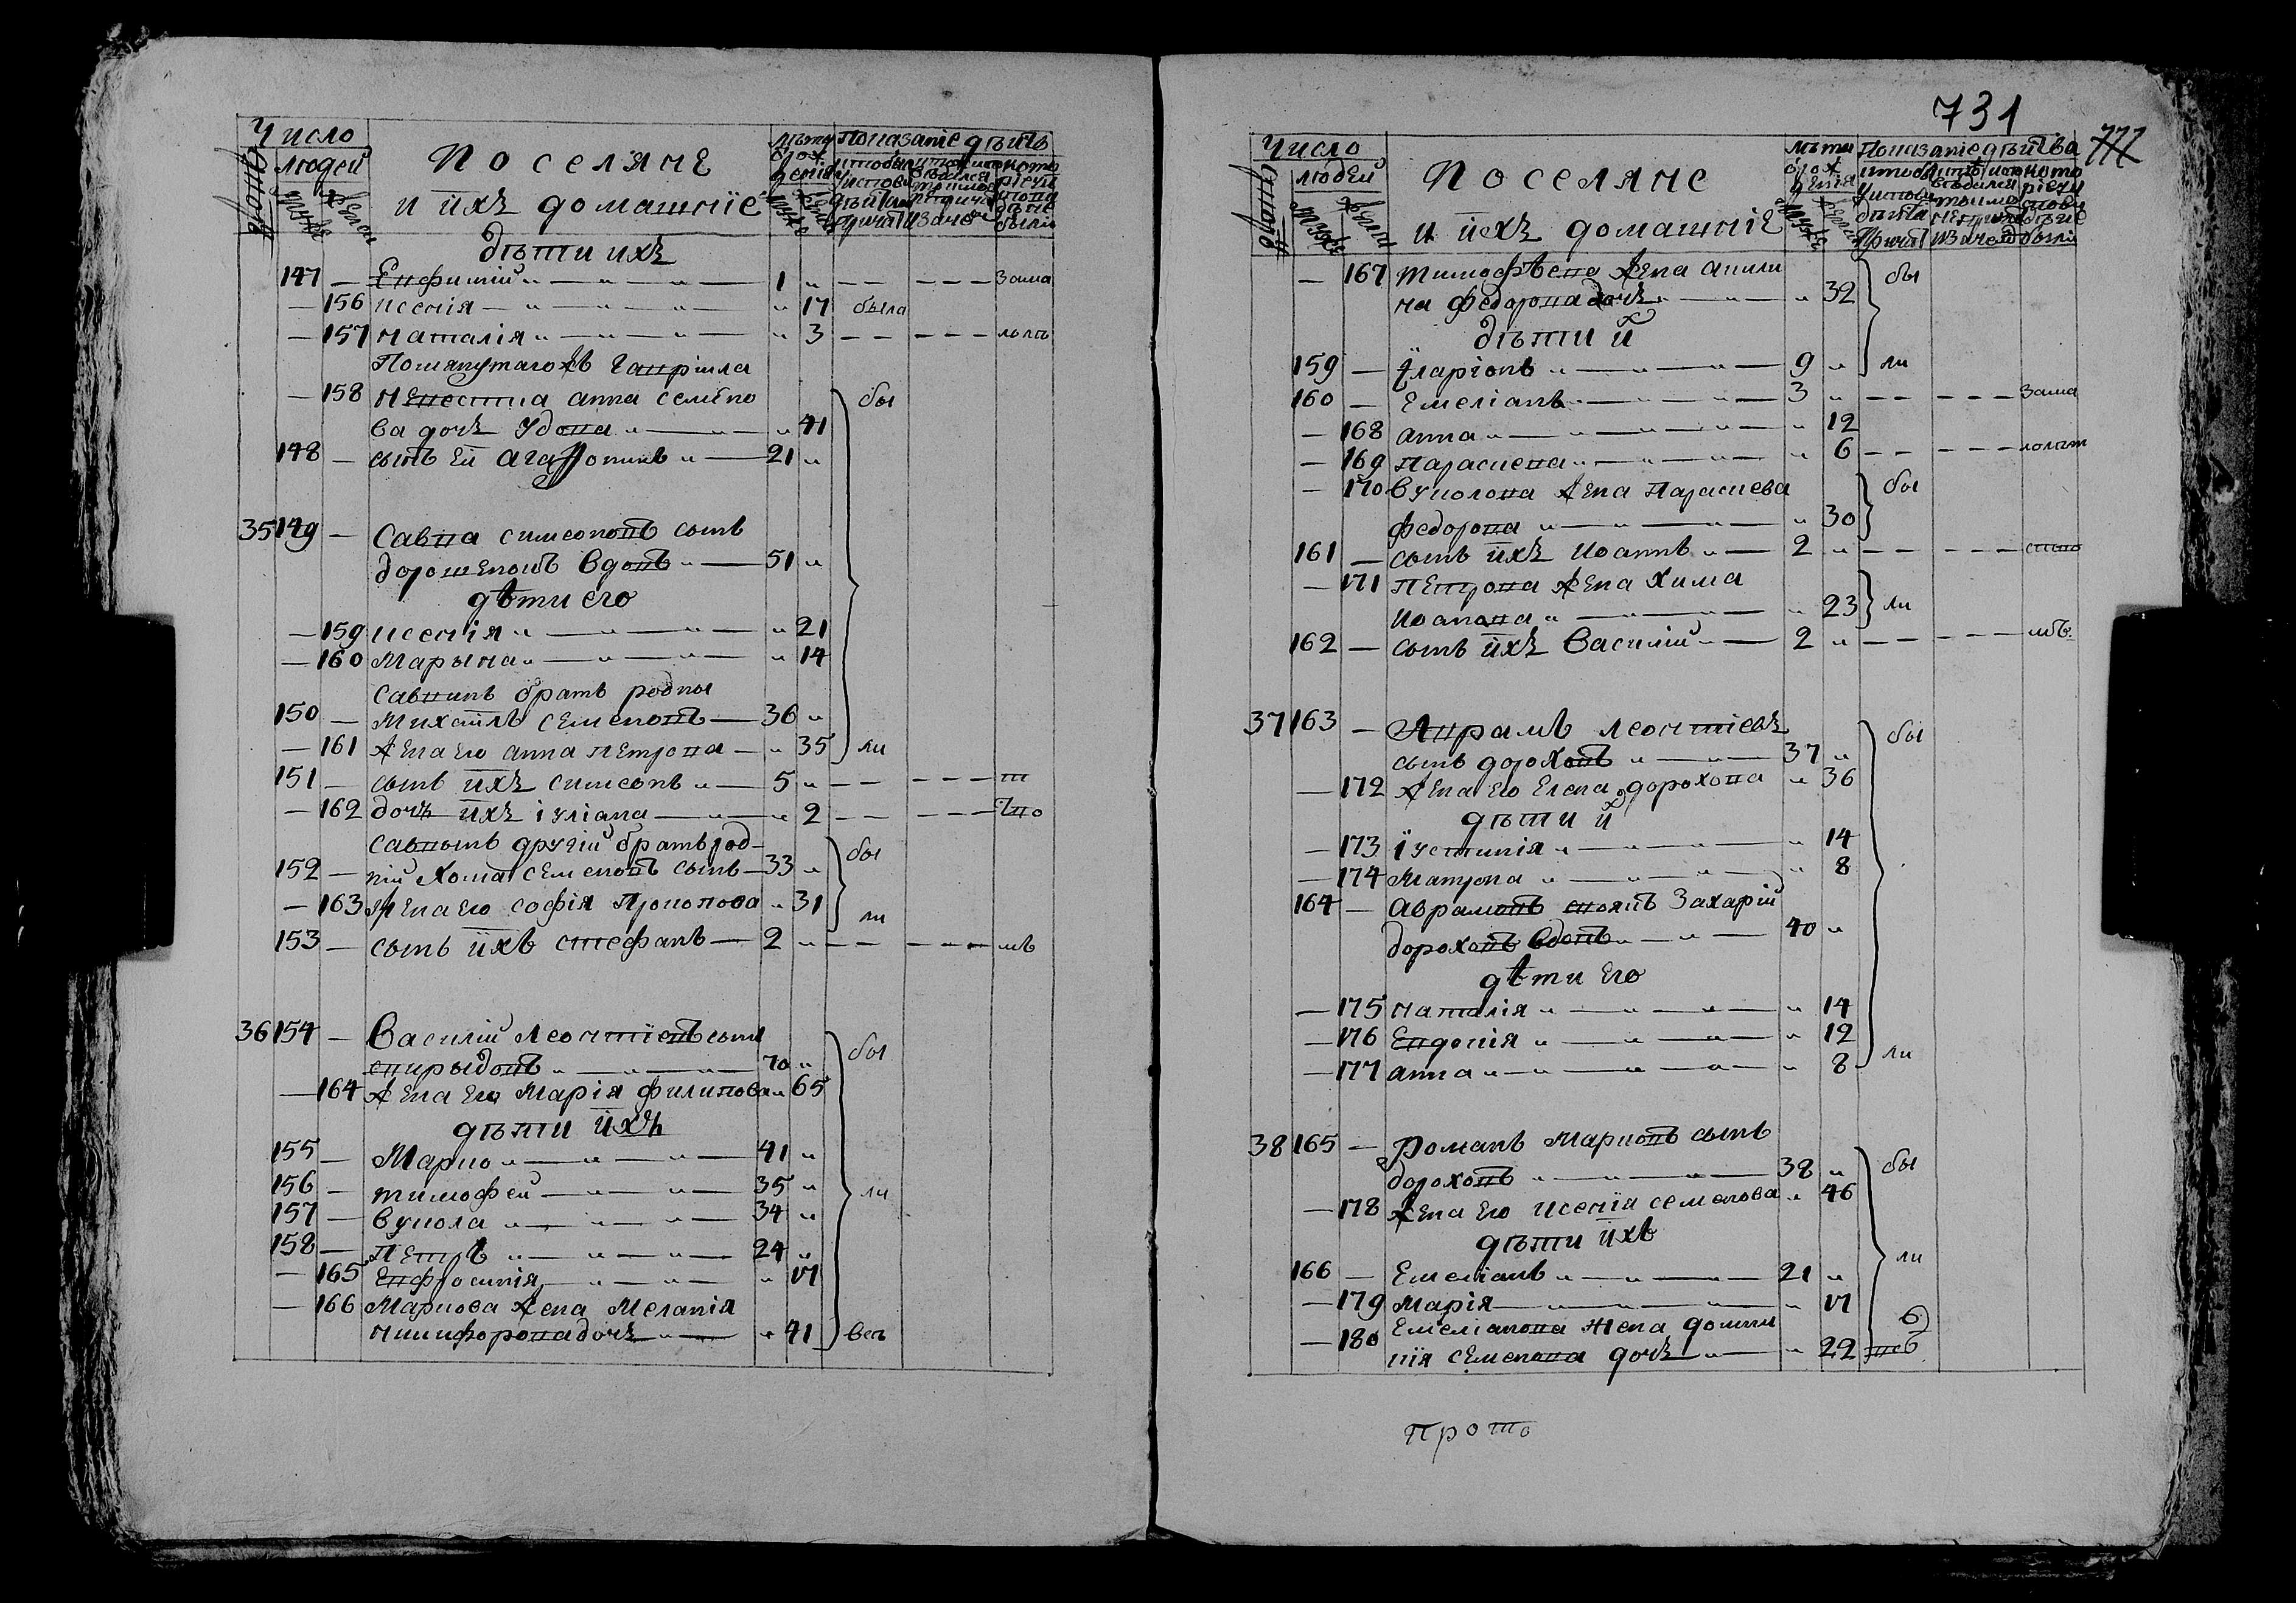 Число
людей
Поселяне
и ихъ домашніе
Показаніе дѣйств
дѣти ихъ
147 — Евфимій 1 зама
— 156 Ксенія 17 была
— 157 Наталія 3 лолѣ
Помянутагожъ Гавріила
— 158 невестка анна семено
ва дочъ Удова 41 бы
148 — сынъ ей агафоникъ 21
35 149 — Савва симеоновъ сынъ
дорошенковъ вдовъ 51
дѣти его
— 159 Ксенія 21
— 160 Марына 14
Саввинъ братъ родны
150 — Михаилъ семеновъ 36
— 161 жена его анна петрова 35 ли
151 — сынъ ихъ симеонъ 5
— 162 дочъ ихъ іуліана 2
Саввынъ другій братъ род-
152 — ній Хома семеновъ сынъ 33 бы
— 163 жена его софія Прокопова 31 ли
153 — сынъ ихъ стефанъ 2 мъ
36 154 — Василій Леонтіевъ сынъ
спирыдовъ 70 бы
— 164 жена его Марія филипова 65
дѣти ихъ
155 — Марко 41
156 — тимофей 35 ли
157 — вукола 34
158 — Петръ 24
— 165 Евфросинія 17
— 166 Маркова жена Меланія
никифорова дочъ 41
731
777
Число
людей
Поселяне
и ихъ домашніе
Показаніе дѣйства
— 167 тимофѣева жена акили
на федорова дочъ 32 бы
дѣти ихъ
159 — Іларіонъ 9 ли
160 — Емеліанъ 3 зама
— 168 анна 12
— 169 Параскева 6
— 170 вуколова жена Параскева бы
федорова 30
161 — сынъ ихъ Иоаннъ 2
— 171 петрова жена Хима
Иоанова 23 ли
162 — сынъ ихъ Василій 2 мъ
37 163 — Аврамъ леонтіевъ бы
сынъ дороховъ 37
— 172 жена его Елена дорохова 36
дѣти ихъ
— 173 Іустинія 14
— 174 Матрона 8
164 — Аврамовъ своякъ Захарій
дороховъ вдовъ 40
дѣти его
— 175 Наталія 14
— 176 Евдокія 12
— 177 анна 8 ли
38 165 — Романъ Марковъ сынъ
дороховъ 38 бы
— 178 жена его ксенія семенова 46
дѣти ихъ
166 — Емеліанъ 21 ли
— 179 Марія 17
— 180 Емеліанова жена домни
кія семенова дочъ 22